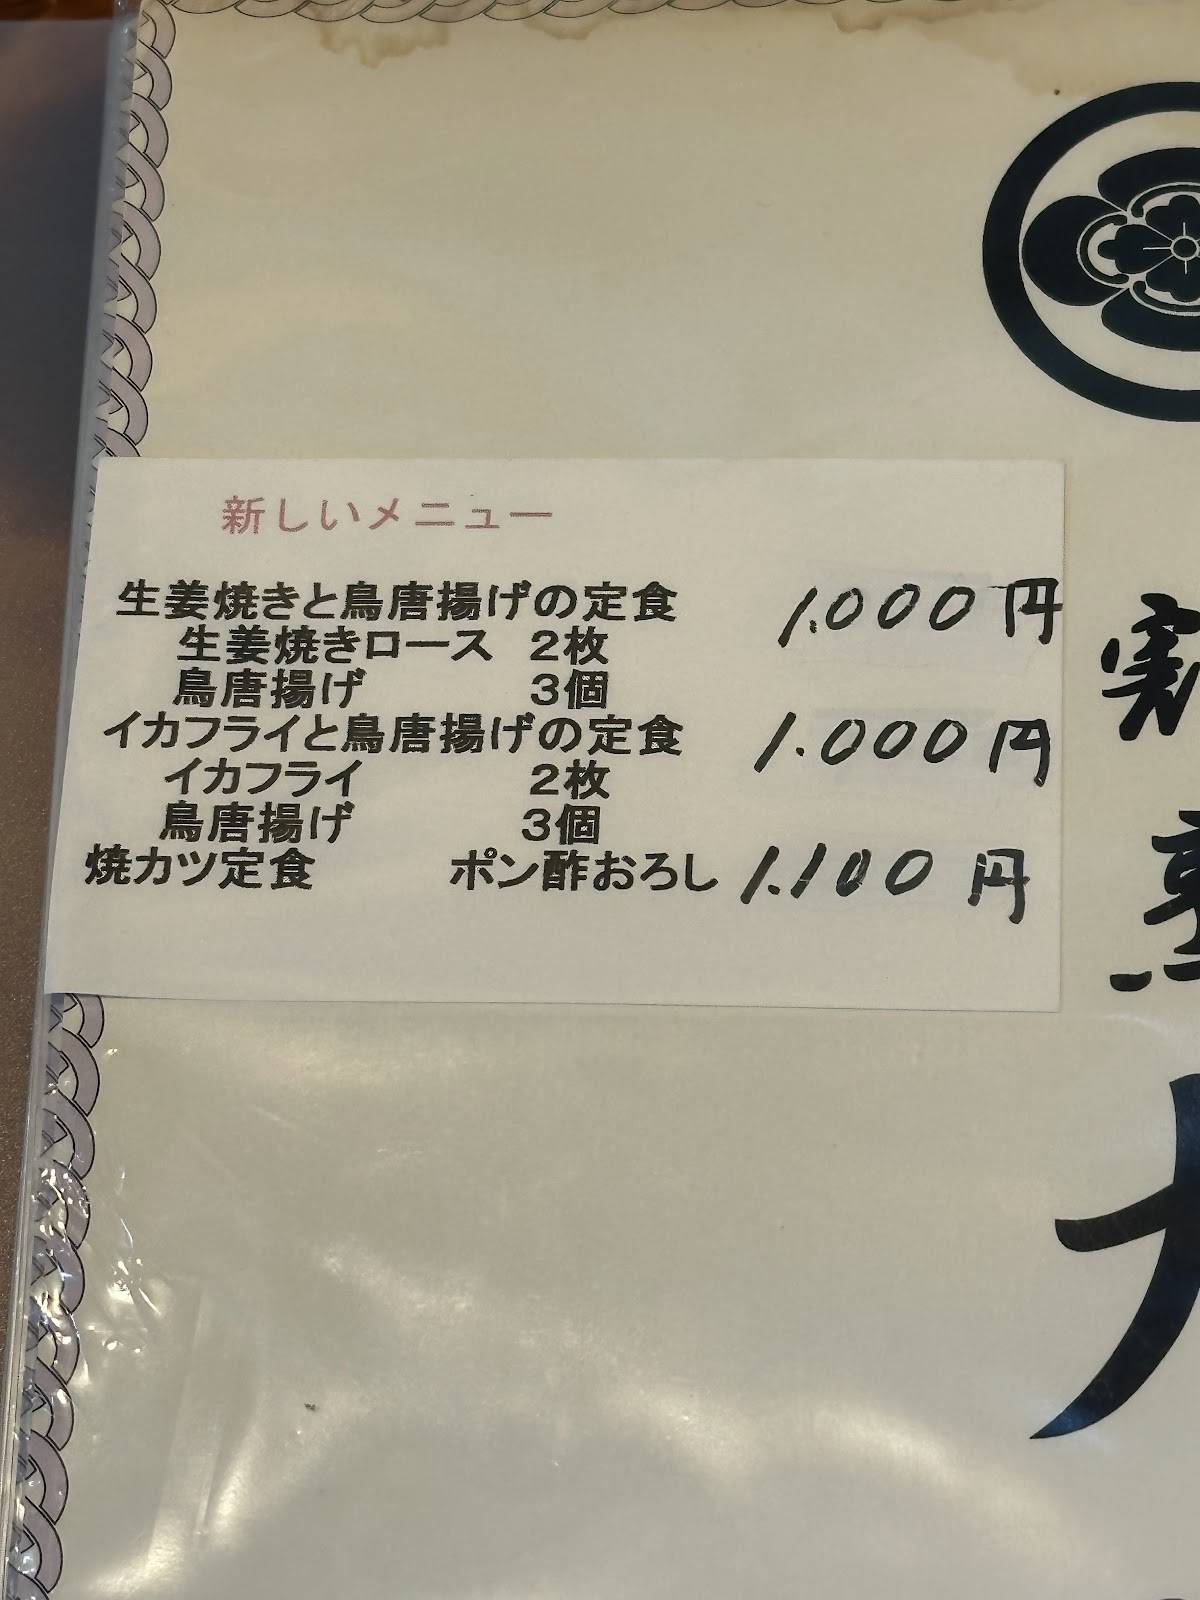 新しいメニュー
生姜焼きと鳥唐揚げの定食 1.000円
生姜焼きロース 2枚
鳥唐揚げ 3個
イカフライと鳥唐揚げの定食 1.000円
イカフライ 2枚
鳥唐揚げ 3個
焼カツ定食 ポン酢おろし 1.100円